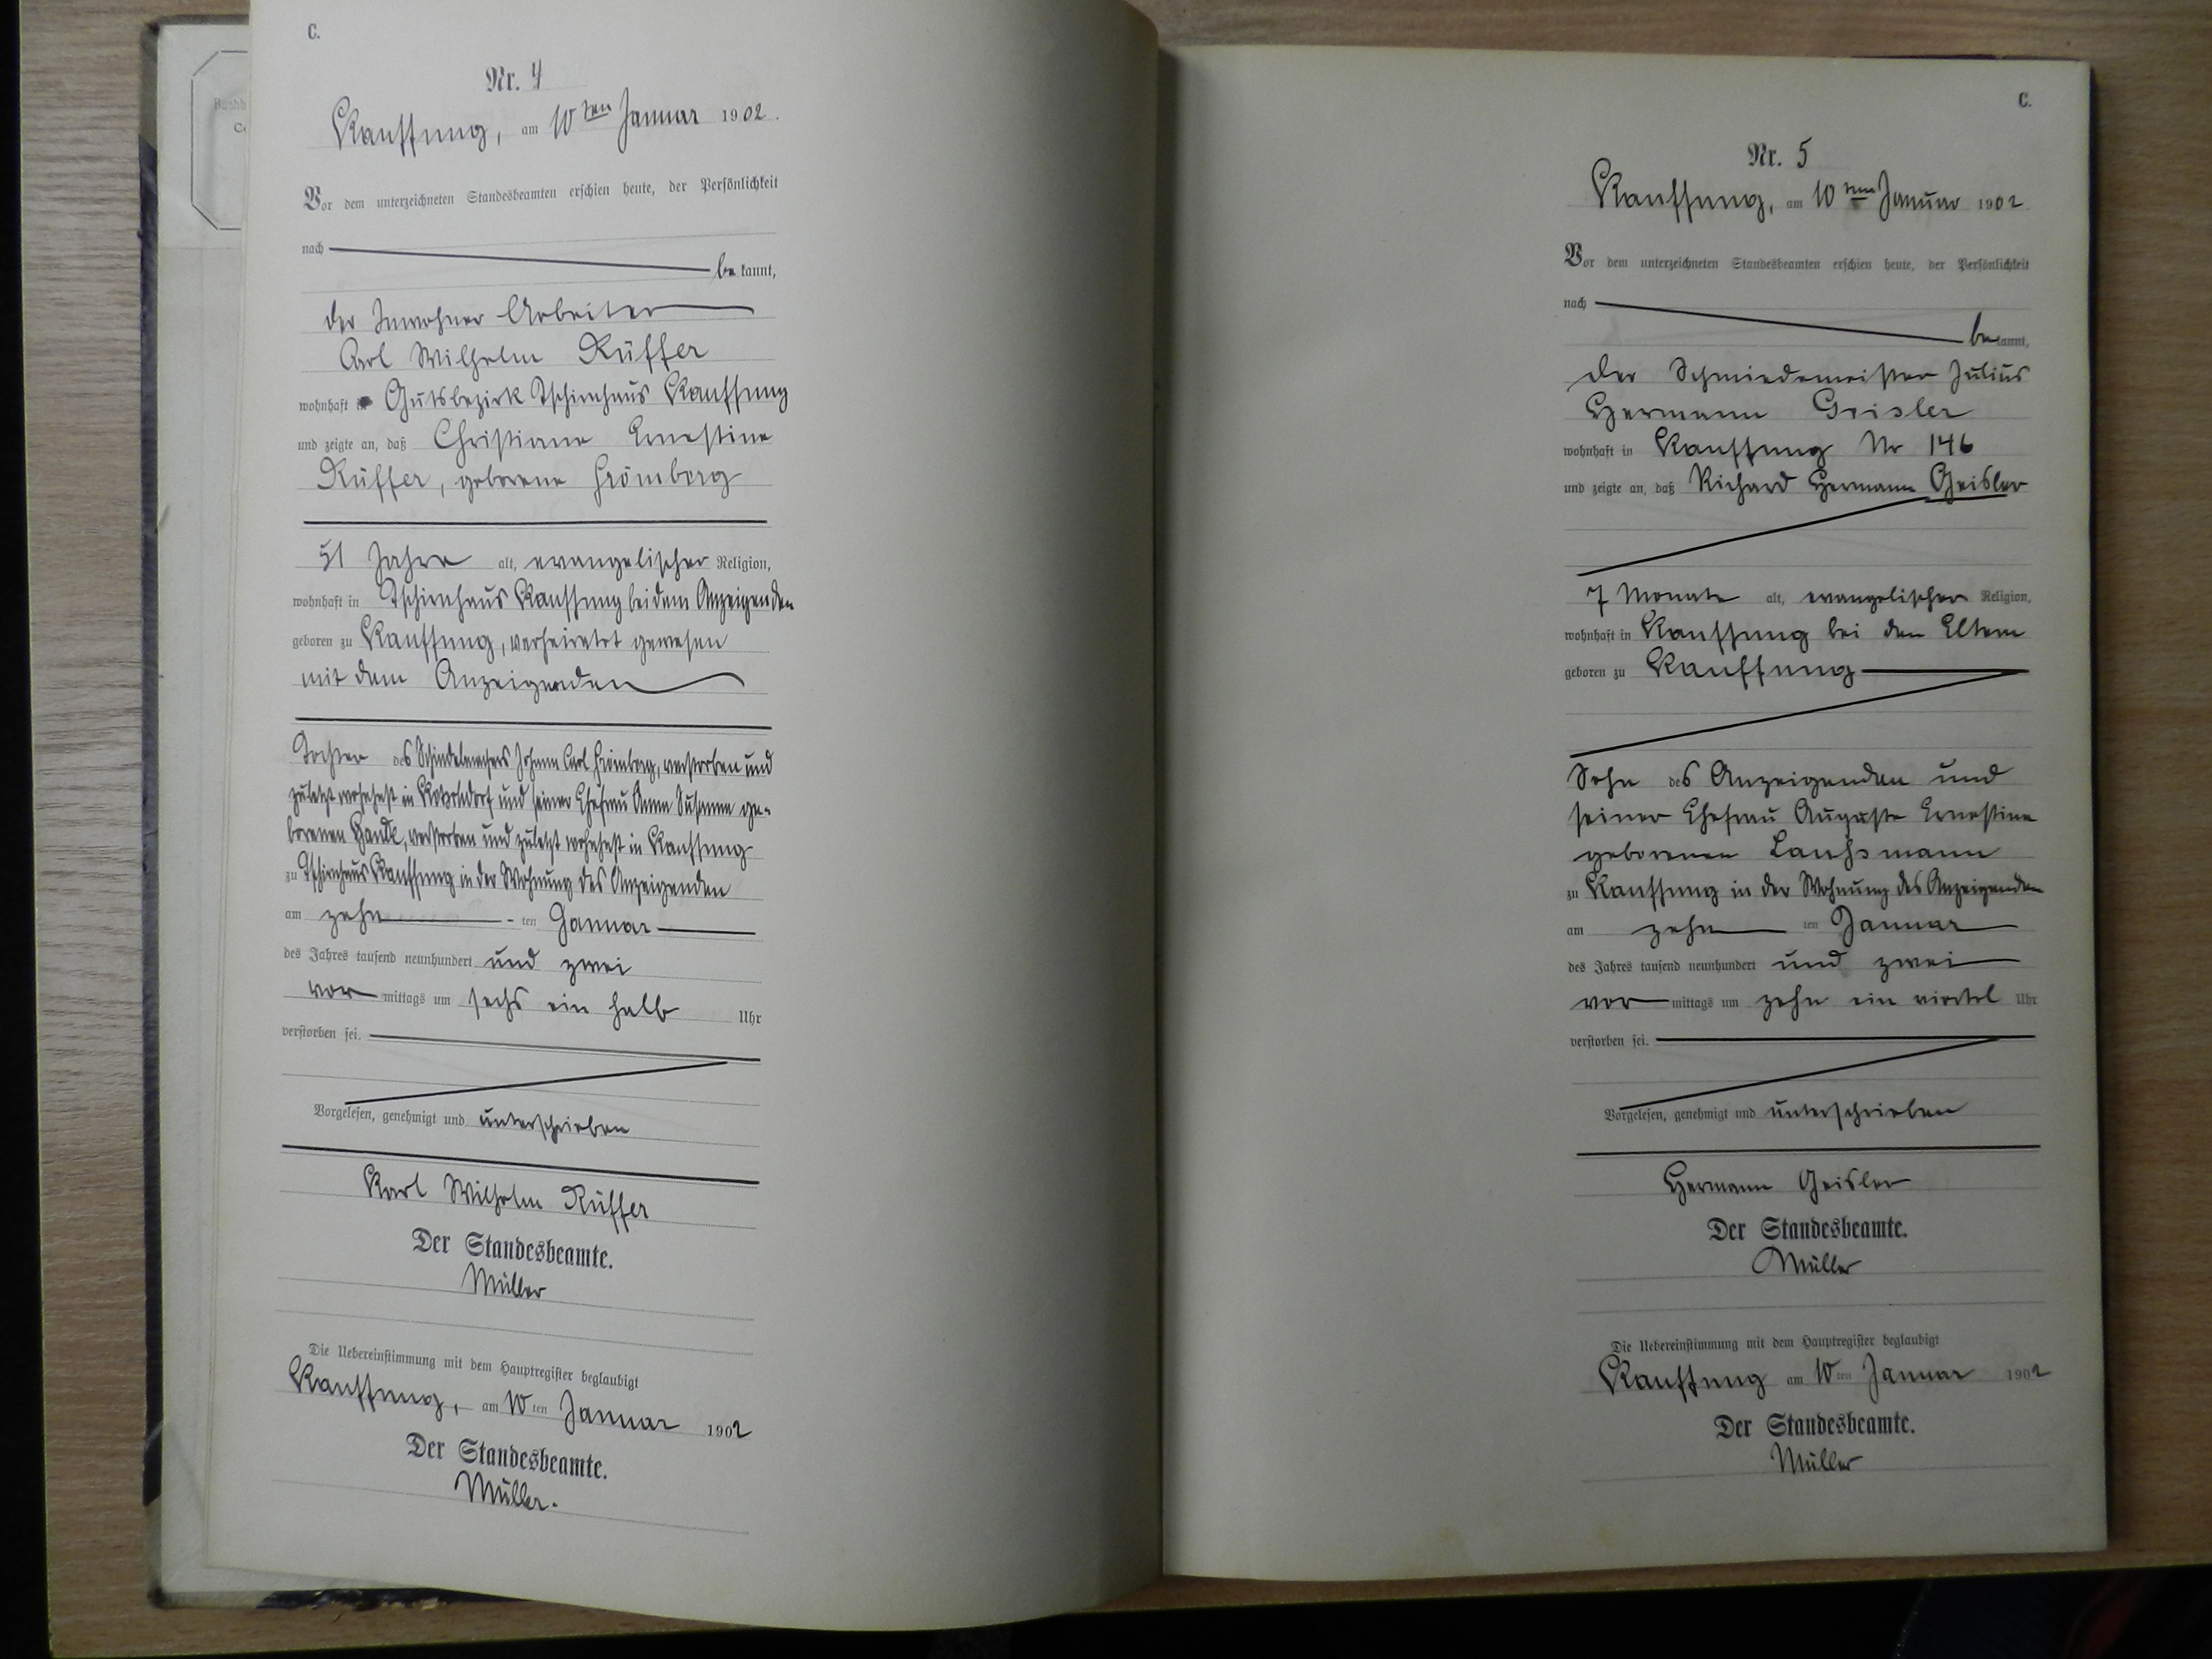 C.
Nr. 4
Kauffung, am 10ten Januar 1902.
Vor dem unterzeichneten Standesbeamten erschien heute, der Persönlichkeit
nach
be kannt,
der Inwohner Arbeiter
Carl Wilhelm Rüffer
wohnhaft in Gutsbezirk Tschirnhaus Kauffung
und zeigte an, daß Christiane Ernestine
Rüffer, geborene Frömberg
51 Jahre alt, evangelischer Religion,
wohnhaft in Tschirnhaus Kauffung bei dem Anzeigenden
geboren zu Kauffung, verheiratet gewesen
mit dem Anzeigenden
Tochter des Schindelmachers Johann Carl Frömberg, verstorben und
zuletzt wohnhaft in und seiner Ehefrau Anna Susanna ge-
borenen verstorben und zuletzt wohnhaft in Kauffung
zu Tschirnhaus Kauffung in der Wohnung des Anzeigenden
am zehn - ten Januar
des Jahres tausend neunhundert und zwei
vor mittags um sechs ein halb Uhr
verstorben sei.
Vorgelesen, genehmigt und unterschrieben
Karl Wilhelm Rüffer
Der Standesbeamte.
Müller
Die Uebereinstimmung mit dem Hauptregister beglaubigt
Kauffung, am 10ten Januar 1902
Der Standesbeamte.
Müller.
C.
Nr. 5
Kauffung, am 10ten Januar 1902.
Vor dem unterzeichneten Standesbeamten erschien heute, der Persönlichkeit
nach
be kannt,
der Schmiedemeister Julius
Hermann Geisler
wohnhaft in Kauffung Nr 146
und zeigte an, daß Richard Hermann Geisler
7 Monate alt, evangelischer Religion,
wohnhaft in Kauffung bei den Eltern
geboren zu Kauffung
Sohn des Anzeigenden und
seiner Ehefrau Auguste Ernestine
geborenen
zu Kauffung in der Wohnung des Anzeigenden
am zehn ten Januar
des Jahres tausend neunhundert und zwei
vor mittags um zehn ein viertel Uhr
verstorben sei.
Vorgelesen, genehmigt und unterschrieben
Hermann Geisler
Der Standesbeamte.
Müller
Die Uebereinstimmung mit dem Hauptregister beglaubigt
Kauffung am 10ten Januar 1902
Der Standesbeamte.
Müller